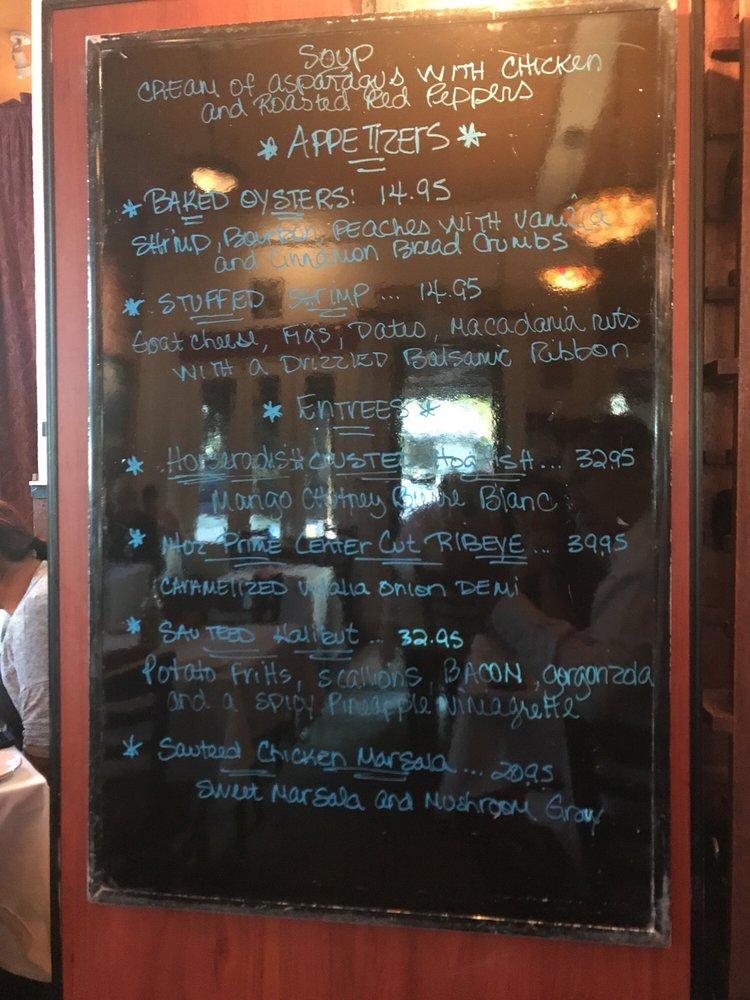 SOUP
CREAM of asparagus WITH CHICKEN
and Roasted Red Peppers
* APPETIZERS *
* BAKED OYSTERS: 14.95
Shrimp, Bourbon, peaches WITH Vanilla
and Cinnamon Bread Crumbs
* STUFFED SHRIMP ... 14.95
Goat cheese, Figs, Dates, Macadamia nuts
WITH a DRIZZLED Balsamic Ribbon
* ENTREES *
* Horseradish CRUSTED Hogfish ... 32.95
Mango Chutney Burre Blanc
* 14oz Prime Center Cut RIBEYE ... 39.95
CARAMELIZED Vidalia Onion DEMI
* SAUTEED Halibut ... 32.95
Potato Fritts, scallions, BACON, gorgonzola
and a spicy Pineapple Vinagrette
* Sauteed Chicken Marsala ... 20.95
Sweet Marsala and Mushroom Gravy